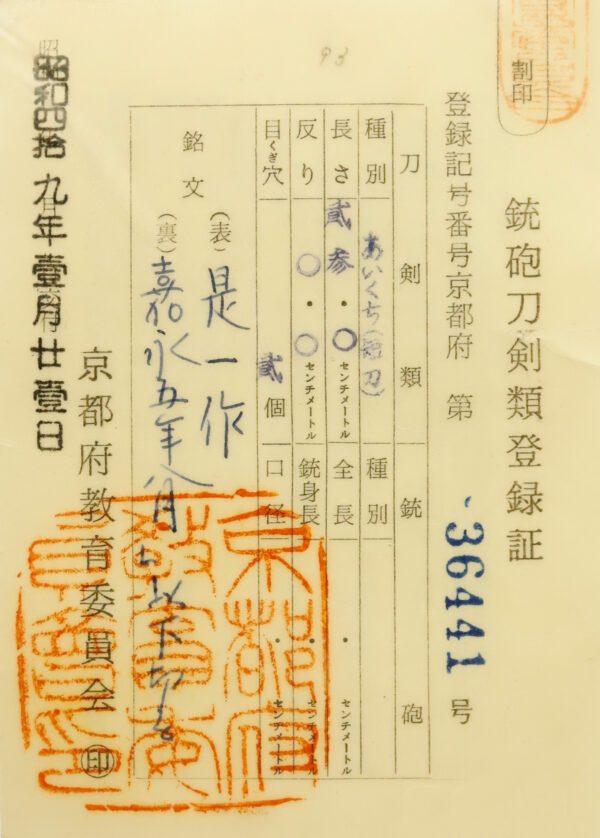 割印
銃砲刀剣類登録証
登録記号番号京都府 第 36441 号
刀剣類 銃砲
種別 あいくち(短刀) 種別
長さ 貳参・〇センチメートル 全長 ・センチメートル
反り 〇・〇センチメートル 銃身長 ・センチメートル
目くぎ穴 貳個 口径 ・センチメートル
銘文 (表)是一作
(裏)嘉永五年八月 以下切る
京都府教育委員会 印
昭和四拾九年壹月廿壹日